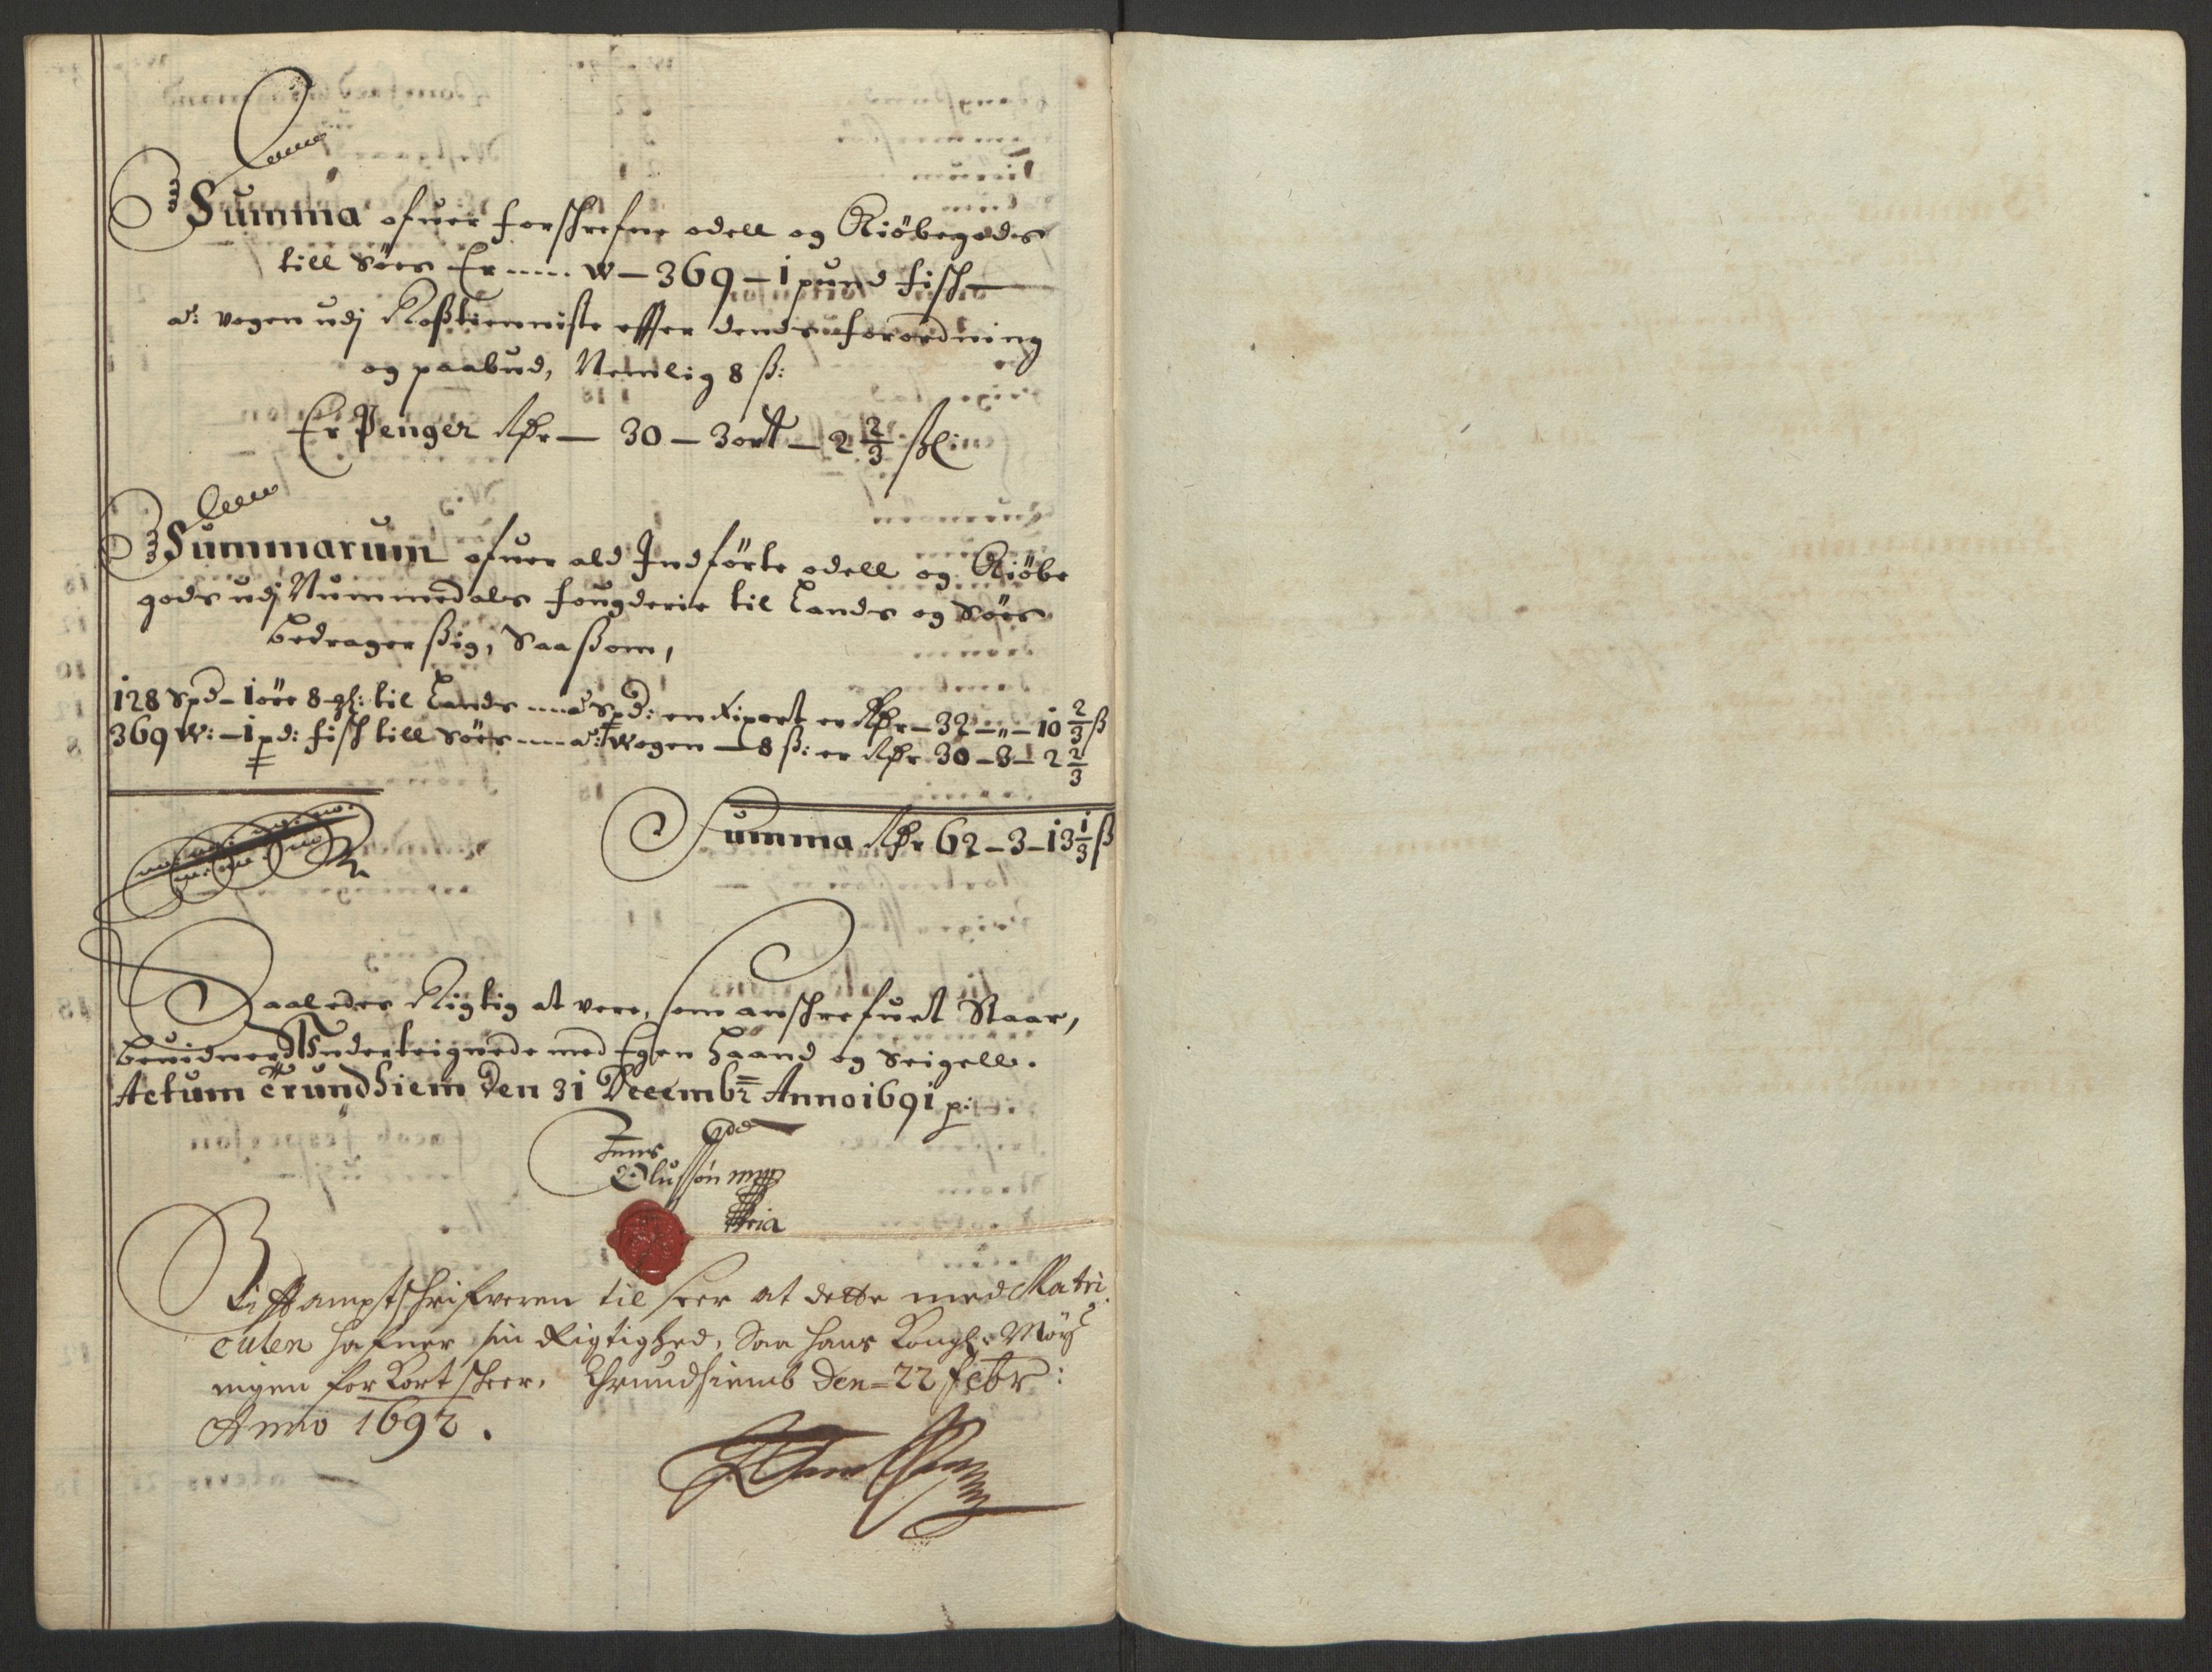 Summa ofuer forschrefne odell og Kiöbegodes
till Söes Er ..... W – 369 – 1 pund fisch –
a: vogen udj Rosstienniste effter dends forordning
og paabud, Nemlig 8 ß:
Er Penger Rdr – 30 – 3 ortt – 2 2/3 ß
Summarum ofuer ald Indförte odell og Kiöbe
gods udj Nummedals fougderie til Lands og Söes
bedrager ßig, Saa ßom,
128 Spd – 1 öre 8 til Lands .... a Spd: en Rixort er Rdr – 32 – „ – 10 2/3 ß
369 W: – 1 pd: fisch till Söes .... a: Wogen – 8 ß: er Rdr 30 – 3 – 2 2/3
Summa Rdr 62 – 3 – 13 1/3 ß
Saaledes Rigtig at vere, som anschrefuet Staar,
beuidner Underteignede med Egen Haand og Seigell.
Actum Trundhiem Den 31 Decembr Anno 1691 p:
Jens
Olussön mpp
ria
Stifftamptschrifveren til seer at dette med Matri
culen hafuer sin Rigtighed, Saa hans Kongl: May
ingen for Kort scheer. Thrundhiemb Den 22 Febr:
Anno 1692.